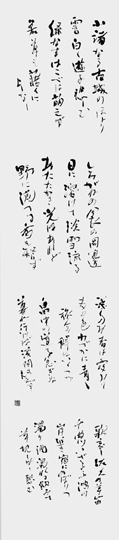 小諸なる古城のほとり
雲白く遊子悲しむ
緑なすはこべは萌えず
若草も藉くに
よしなし
しろがねの衾の岡邊
日に溶けて淡雪流る
あたゝかき光はあれど
野に満つる香も知らず
浅くのみ春は霞みて
麦の色わづかに青し
旅人の群はいくつか
畠中の道を急ぎぬ
暮れ行けば浅間も見えず
歌哀し佐久の草笛
千曲川いざよふ波の
岸近き宿にのぼりつ
濁り酒濁れる飲みて
草枕しばし慰む